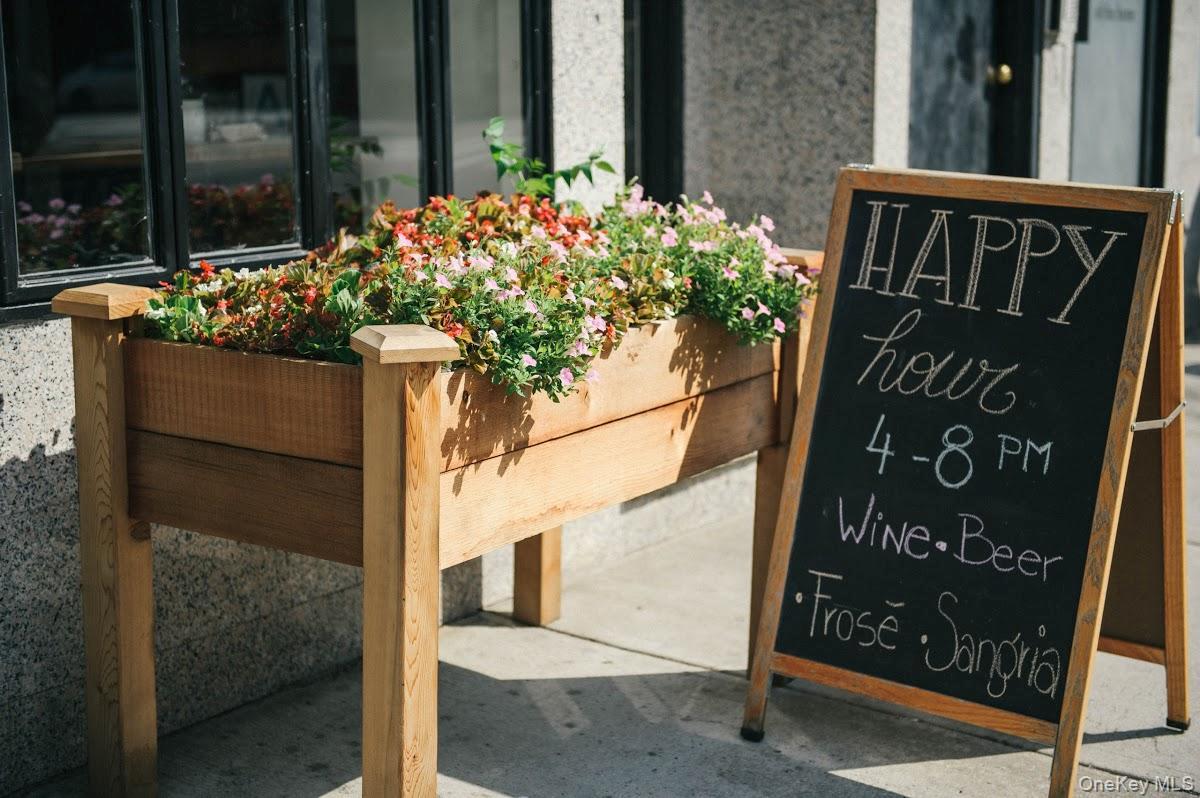 HAPPY
hour
4-8 PM
Wine • Beer
• Frosē • Sangria
OneKey MLS